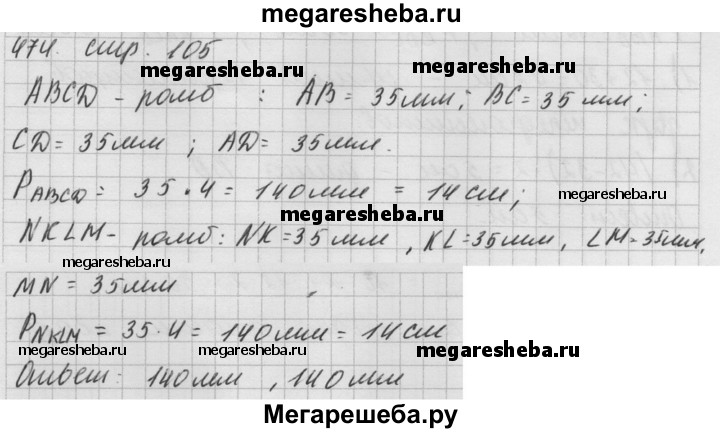 megaresheba.ru
474. стр. 105
megaresheba.ru megaresheba.ru
ABCD – ромб : AB = 35 мм; BC = 35 мм;
CD = 35 мм ; AD = 35 мм.
P ABCD = 35 · 4 = 140 мм = 14 см;
megaresheba.ru
megaresheba.ru
NKLM – ромб: NK = 35 мм , KL = 35 мм, LM = 35 мм,
megaresheba.ru
MN = 35 мм
P NKLM = 35 · 4 = 140 мм = 14 см
megaresheba.ru megaresheba.ru megaresheba.ru
Ответ: 140 мм , 140 мм
Мегарешеба.ру